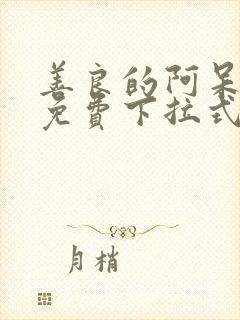 善良的阿呆
免费下拉式
月梢